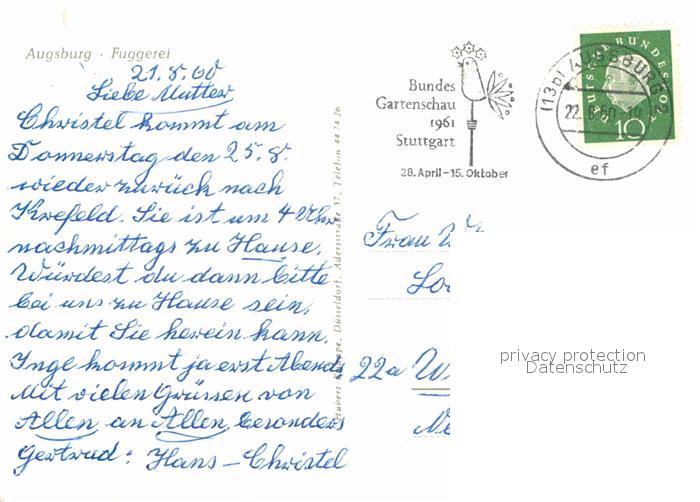 Augsburg · Fuggerei
21.8.60
Liebe Mutter
Christel kommt am
Donnerstag den 25.8.
wieder zurück nach
Krefeld. Sie ist um 4 Uhr
nachmittags zu Hause.
Würdest du dann bitte
bei uns zu Hause sein,
damit Sie herein kann.
Inge kommt ja erst Abends
Mit vielen Grüssen von
Allen an Allen besonders
Gertrud: Hans - Christel
Bundes
Gartenschau
1961
Stuttgart
28. April-15. Oktober
(13b) AUGSBURG 2
22.8.60
ef
DEUTSCHE BUNDESPOST
10
Düsseldorf, Adersstraße 57, Telefon 44 74 26
Frau
22a
privacy protection
Datenschutz